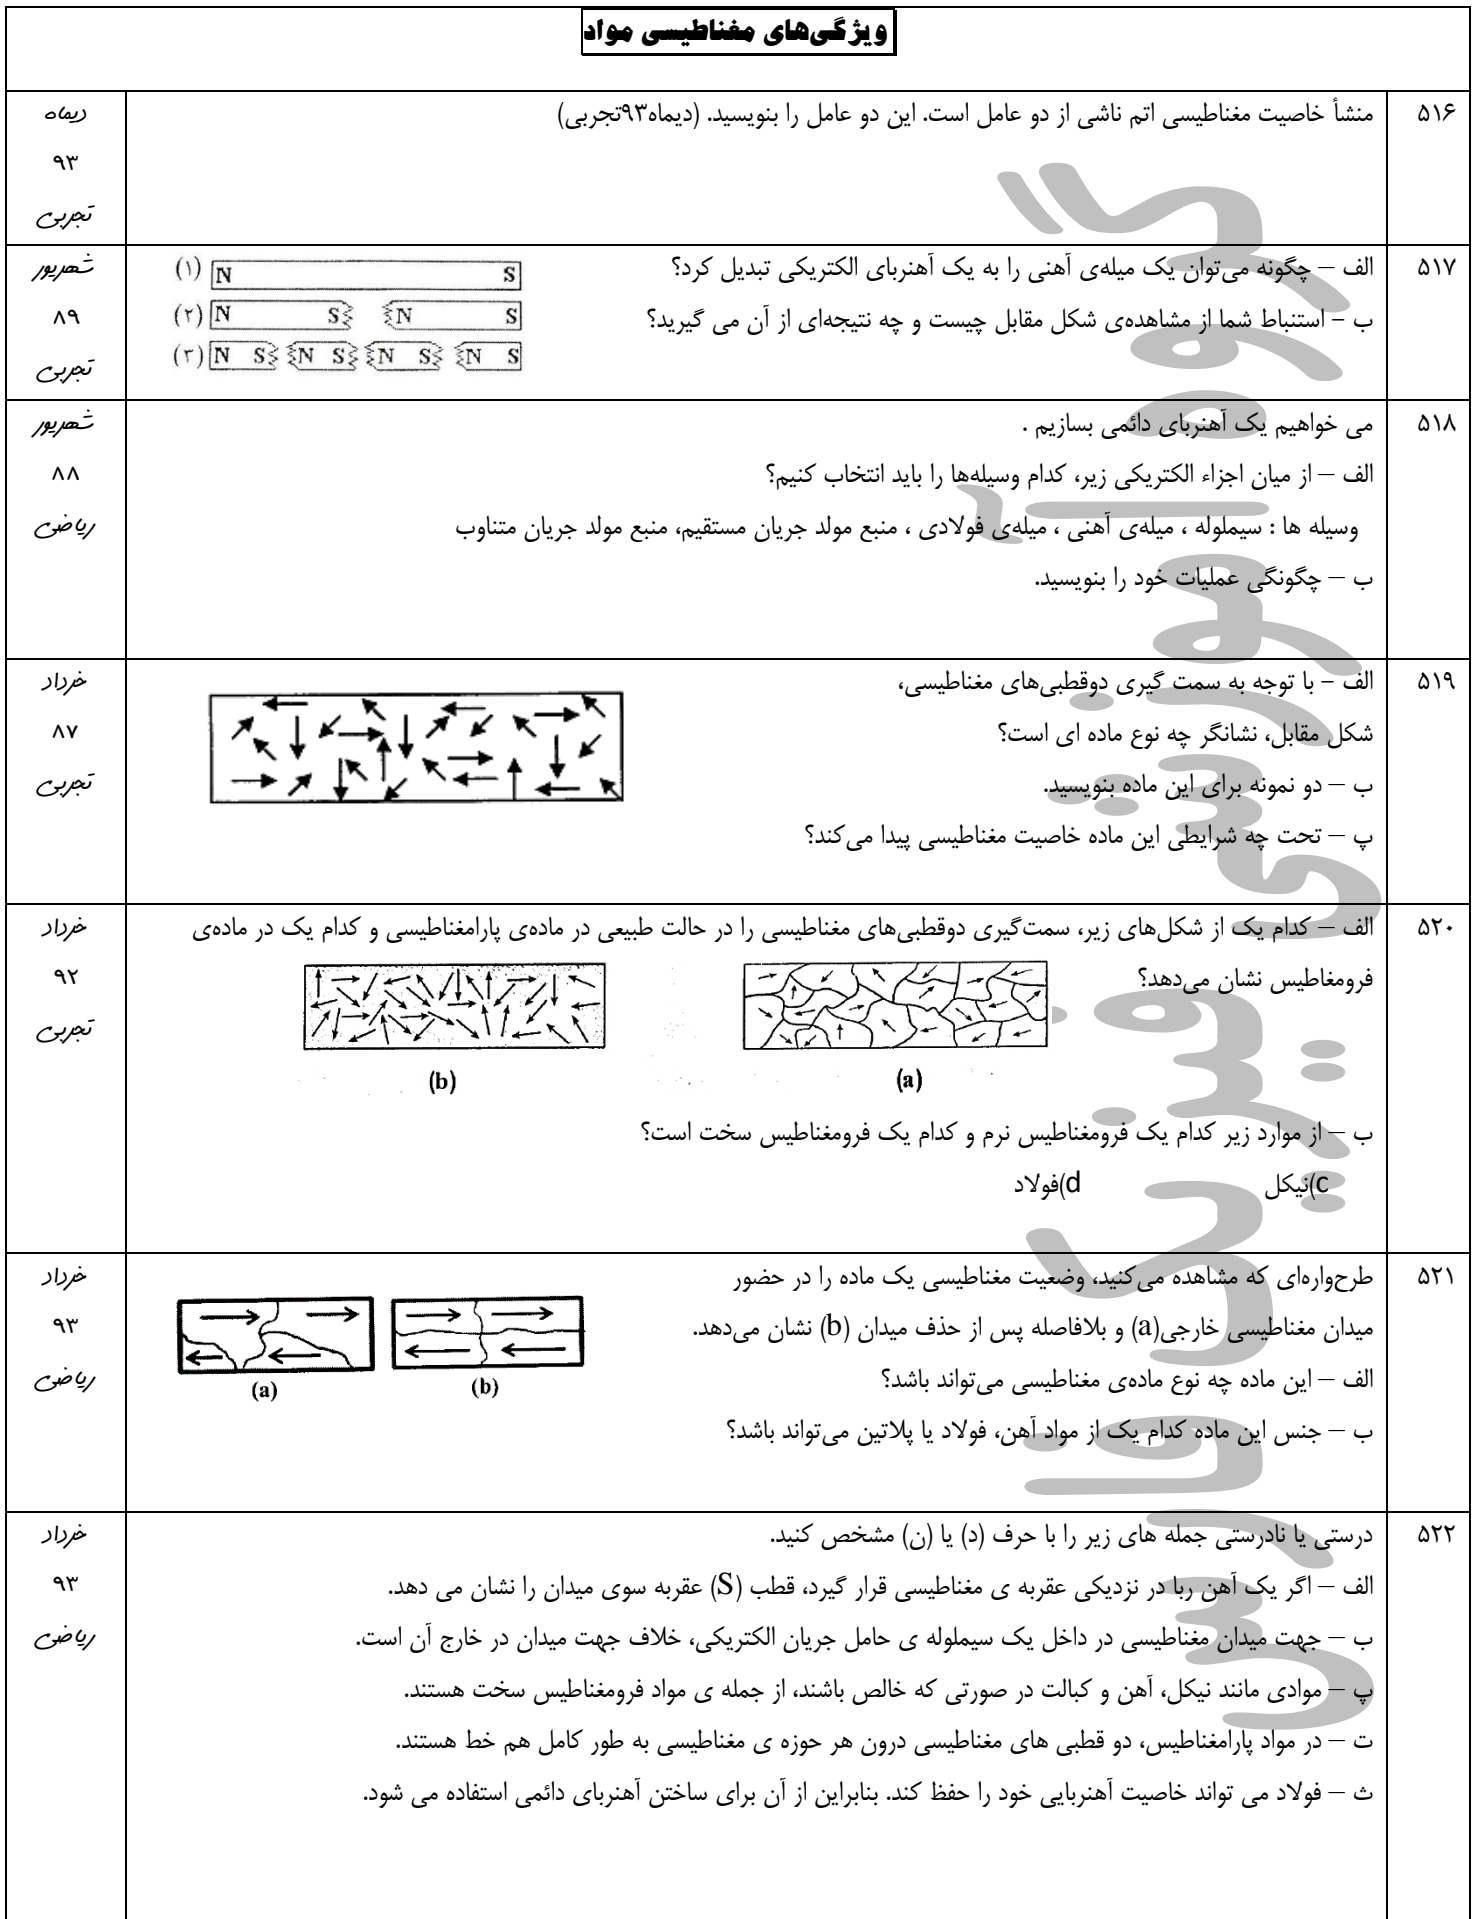 ویژگی‌های مغناطیسی مواد
۵۱۶
منشأ خاصیت مغناطیسی اتم ناشی از دو عامل است. این دو عامل را بنویسید. (دیماه۹۳تجربی)
دیماه
۹۳
تجربی
۵۱۷
الف – چگونه می‌توان یک میله‌ی آهنی را به یک آهنربای الکتریکی تبدیل کرد؟
ب – استنباط شما از مشاهده‌ی شکل مقابل چیست و چه نتیجه‌ای از آن می گیرید؟
(۱) N S
(۲) N S N S
(۳) N S N S N S N S
شهریور
۸۹
تجربی
۵۱۸
می خواهیم یک آهنربای دائمی بسازیم .
الف – از میان اجزاء الکتریکی زیر، کدام وسیله‌ها را باید انتخاب کنیم؟
وسیله ها : سیملوله ، میله‌ی آهنی ، میله‌ی فولادی ، منبع مولد جریان مستقیم، منبع مولد جریان متناوب
ب – چگونگی عملیات خود را بنویسید.
شهریور
۸۸
ریاضی
۵۱۹
الف – با توجه به سمت گیری دوقطبی‌های مغناطیسی،
شکل مقابل، نشانگر چه نوع ماده ای است؟
ب – دو نمونه برای این ماده بنویسید.
پ – تحت چه شرایطی این ماده خاصیت مغناطیسی پیدا می‌کند؟
خرداد
۸۷
تجربی
۵۲۰
الف – کدام یک از شکل‌های زیر، سمت‌گیری دوقطبی‌های مغناطیسی را در حالت طبیعی در ماده‌ی پارامغناطیسی و کدام یک در ماده‌ی
فرومغاطیس نشان می‌دهد؟
(a)
(b)
ب – از موارد زیر کدام یک فرومغناطیس نرم و کدام یک فرومغناطیس سخت است؟
c)نیکل d)فولاد
خرداد
۹۲
تجربی
۵۲۱
طرح‌واره‌ای که مشاهده می‌کنید، وضعیت مغناطیسی یک ماده را در حضور
میدان مغناطیسی خارجی(a) و بلافاصله پس از حذف میدان (b) نشان می‌دهد.
الف – این ماده چه نوع ماده‌ی مغناطیسی می‌تواند باشد؟
ب – جنس این ماده کدام یک از مواد آهن، فولاد یا پلاتین می‌تواند باشد؟
(a)
(b)
خرداد
۹۳
ریاضی
۵۲۲
درستی یا نادرستی جمله های زیر را با حرف (د) یا (ن) مشخص کنید.
الف – اگر یک آهن ربا در نزدیکی عقربه ی مغناطیسی قرار گیرد، قطب (S) عقربه سوی میدان را نشان می دهد.
ب – جهت میدان مغناطیسی در داخل یک سیملوله ی حامل جریان الکتریکی، خلاف جهت میدان در خارج آن است.
پ – موادی مانند نیکل، آهن و کبالت در صورتی که خالص باشند، از جمله ی مواد فرومغناطیس سخت هستند.
ت – در مواد پارامغناطیس، دو قطبی های مغناطیسی درون هر حوزه ی مغناطیسی به طور کامل هم خط هستند.
ث – فولاد می تواند خاصیت آهنربایی خود را حفظ کند. بنابراین از آن برای ساختن آهنربای دائمی استفاده می شود.
خرداد
۹۳
ریاضی